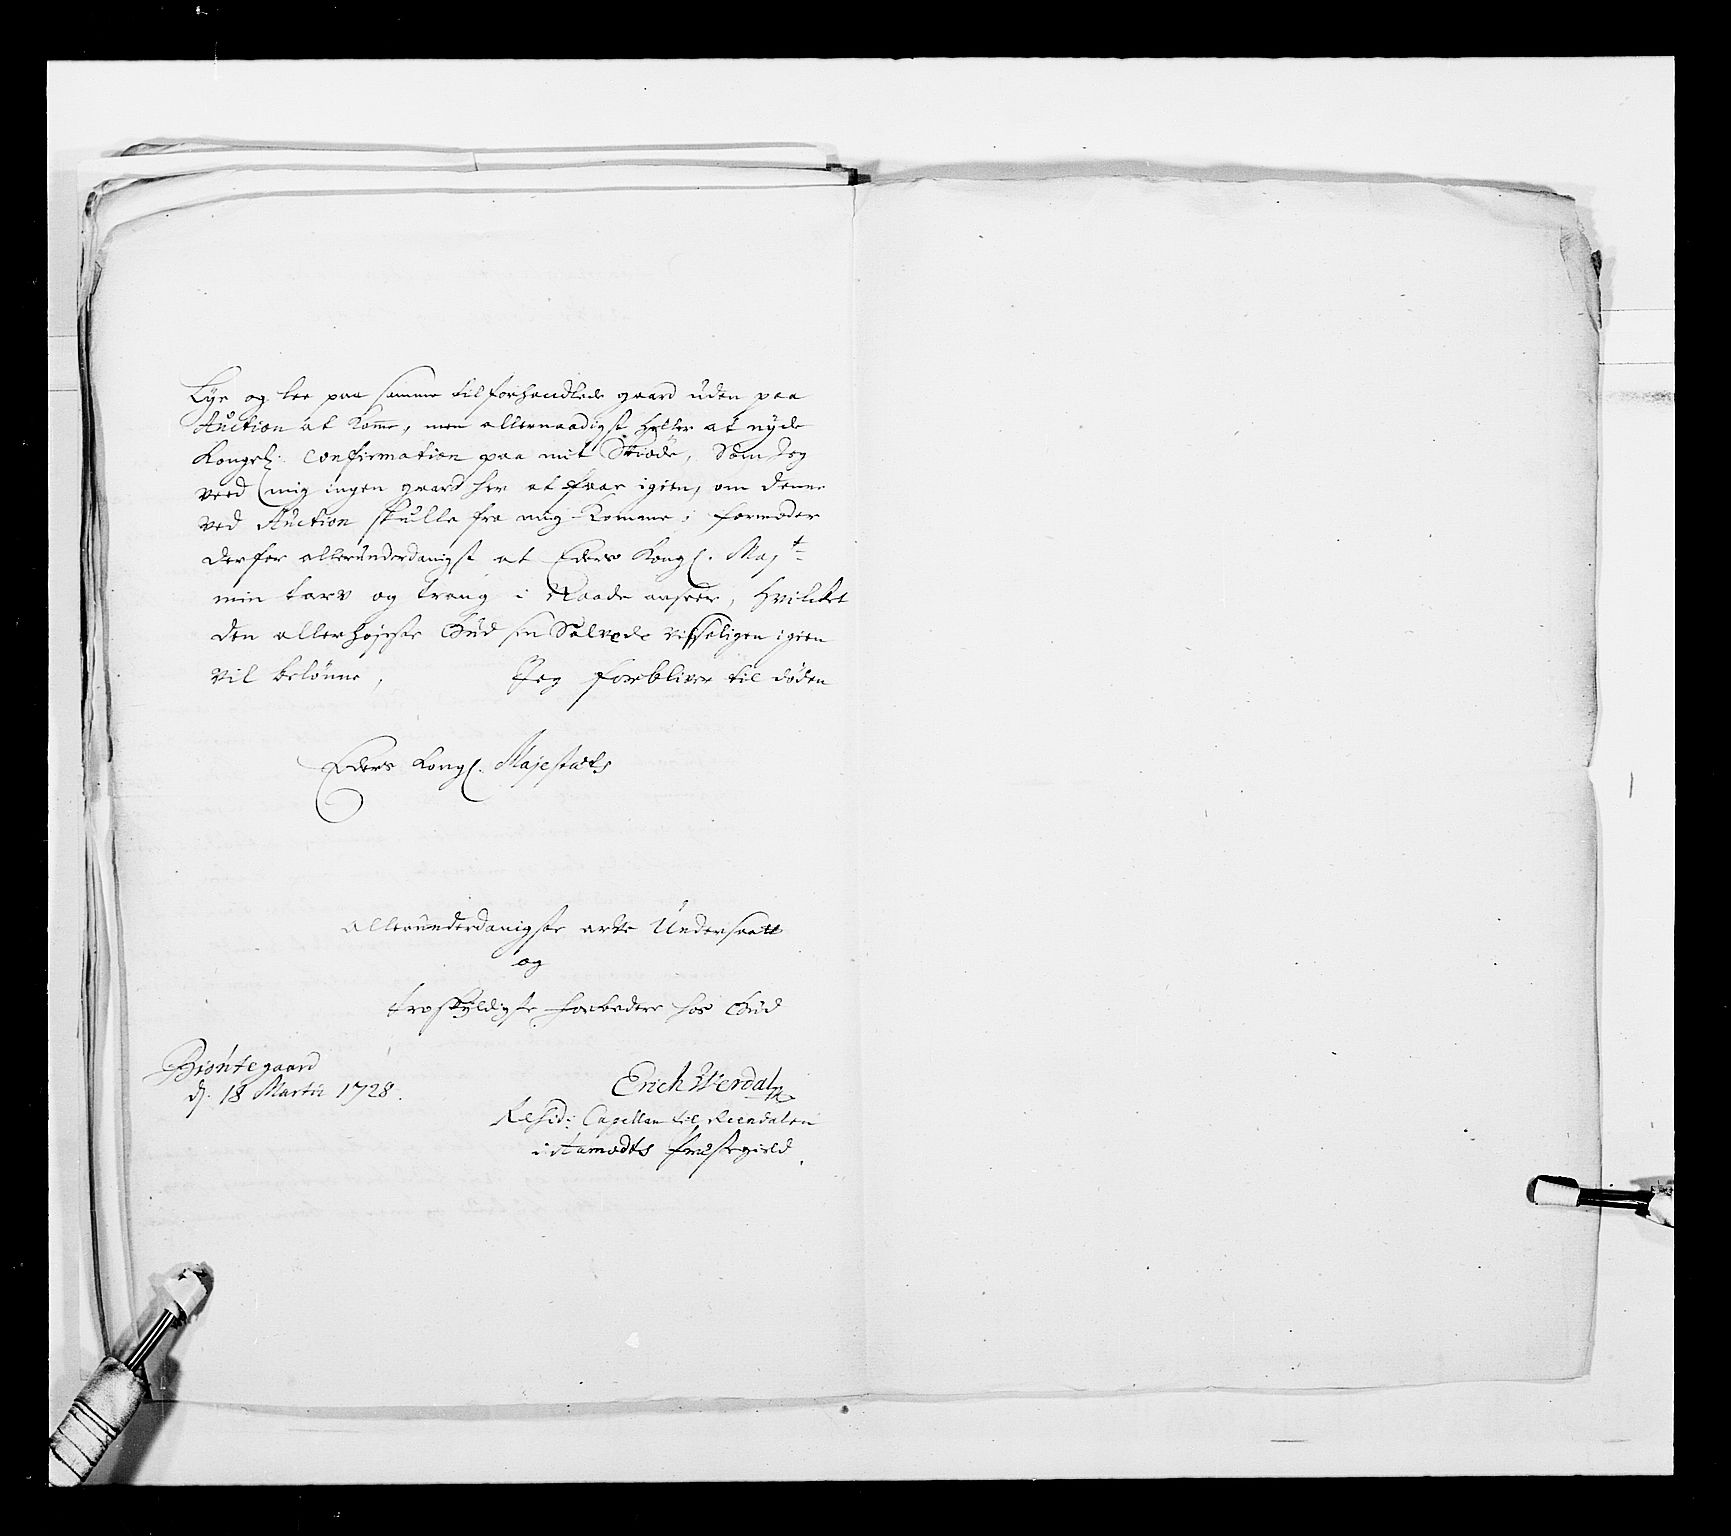 Lye og lee paa samme tilforhandlede gaard uden paa
Auction at komme, men allernaadigst heller at nyde
Kongel: Confirmation paa mit Skiøde, Som Jeg
veed mig ingen gaard her at faae igien, om denne
ved Auction skulle fra mig komme; formoder
derfor allerunderdanigst at Eders Kongl. Majt
min tarv og trang i Naade anseer, hvilcket
den allerhøjeste Gud sin Salvede visseligen igien
vil belønne, Jeg forbliver til døden
Eders Kongl. Majestæts
allerunderdanigste arve Undersaatt
og
troskyldigste forbedere hos Gud
gaard
d. 18 Martii 1728.
Erich Werdal
Resid: Capellan til Reendalen
i Aamodts præstegield.